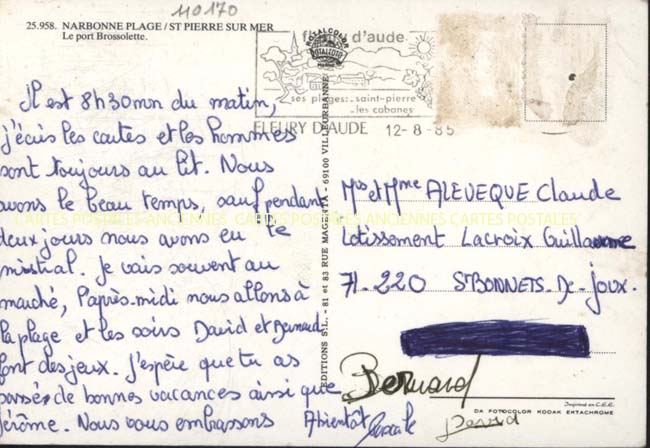 110170
25.958. NARBONNE PLAGE / ST PIERRE SUR MER
Le port Brossolette.
fleury d'aude
ses plages: saint-pierre
les cabanes
FLEURY D'AUDE 12-8-85
Il est 8h30mn du matin,
j'écris les cartes et les hommes
sont toujours au lit. Nous
avons le beau temps, sauf pendant
deux jours nous avons eu le
mistral. Je vais souvent au
marché, l'après-midi nous allons à
la plage et les soirs David et Bernard
font des jeux. J'espère que tu as
passés de bonnes vacances ainsi que
Jérôme. Nous vous embrassons
Abientôt Pascale
Bernard
David
EDITIONS S.L. - 81 et 83 RUE MAGENTA - 69100 VILLEURBANNE
ROYALCOLOR
Mrs et Mme ALEVEQUE Claude
Lotissement Lacroix Guillaume
71-220 St BONNETS De-Joux.
Imprimé en C.E.E.
DA FOTOCOLOR KODAK EKTACHROME
CARTES POSTALES ANCIENNES CARTES POSTALES ANCIENNES CARTES POSTALES